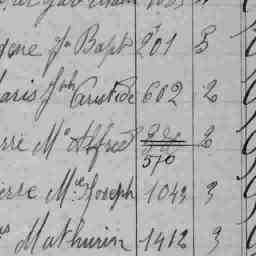 Jh Bapt 201 3
aris Jph Aristide 602 2
rre Me Alfred 510 2
erre Me Joseph 1043 3
Mathurin 1412 3